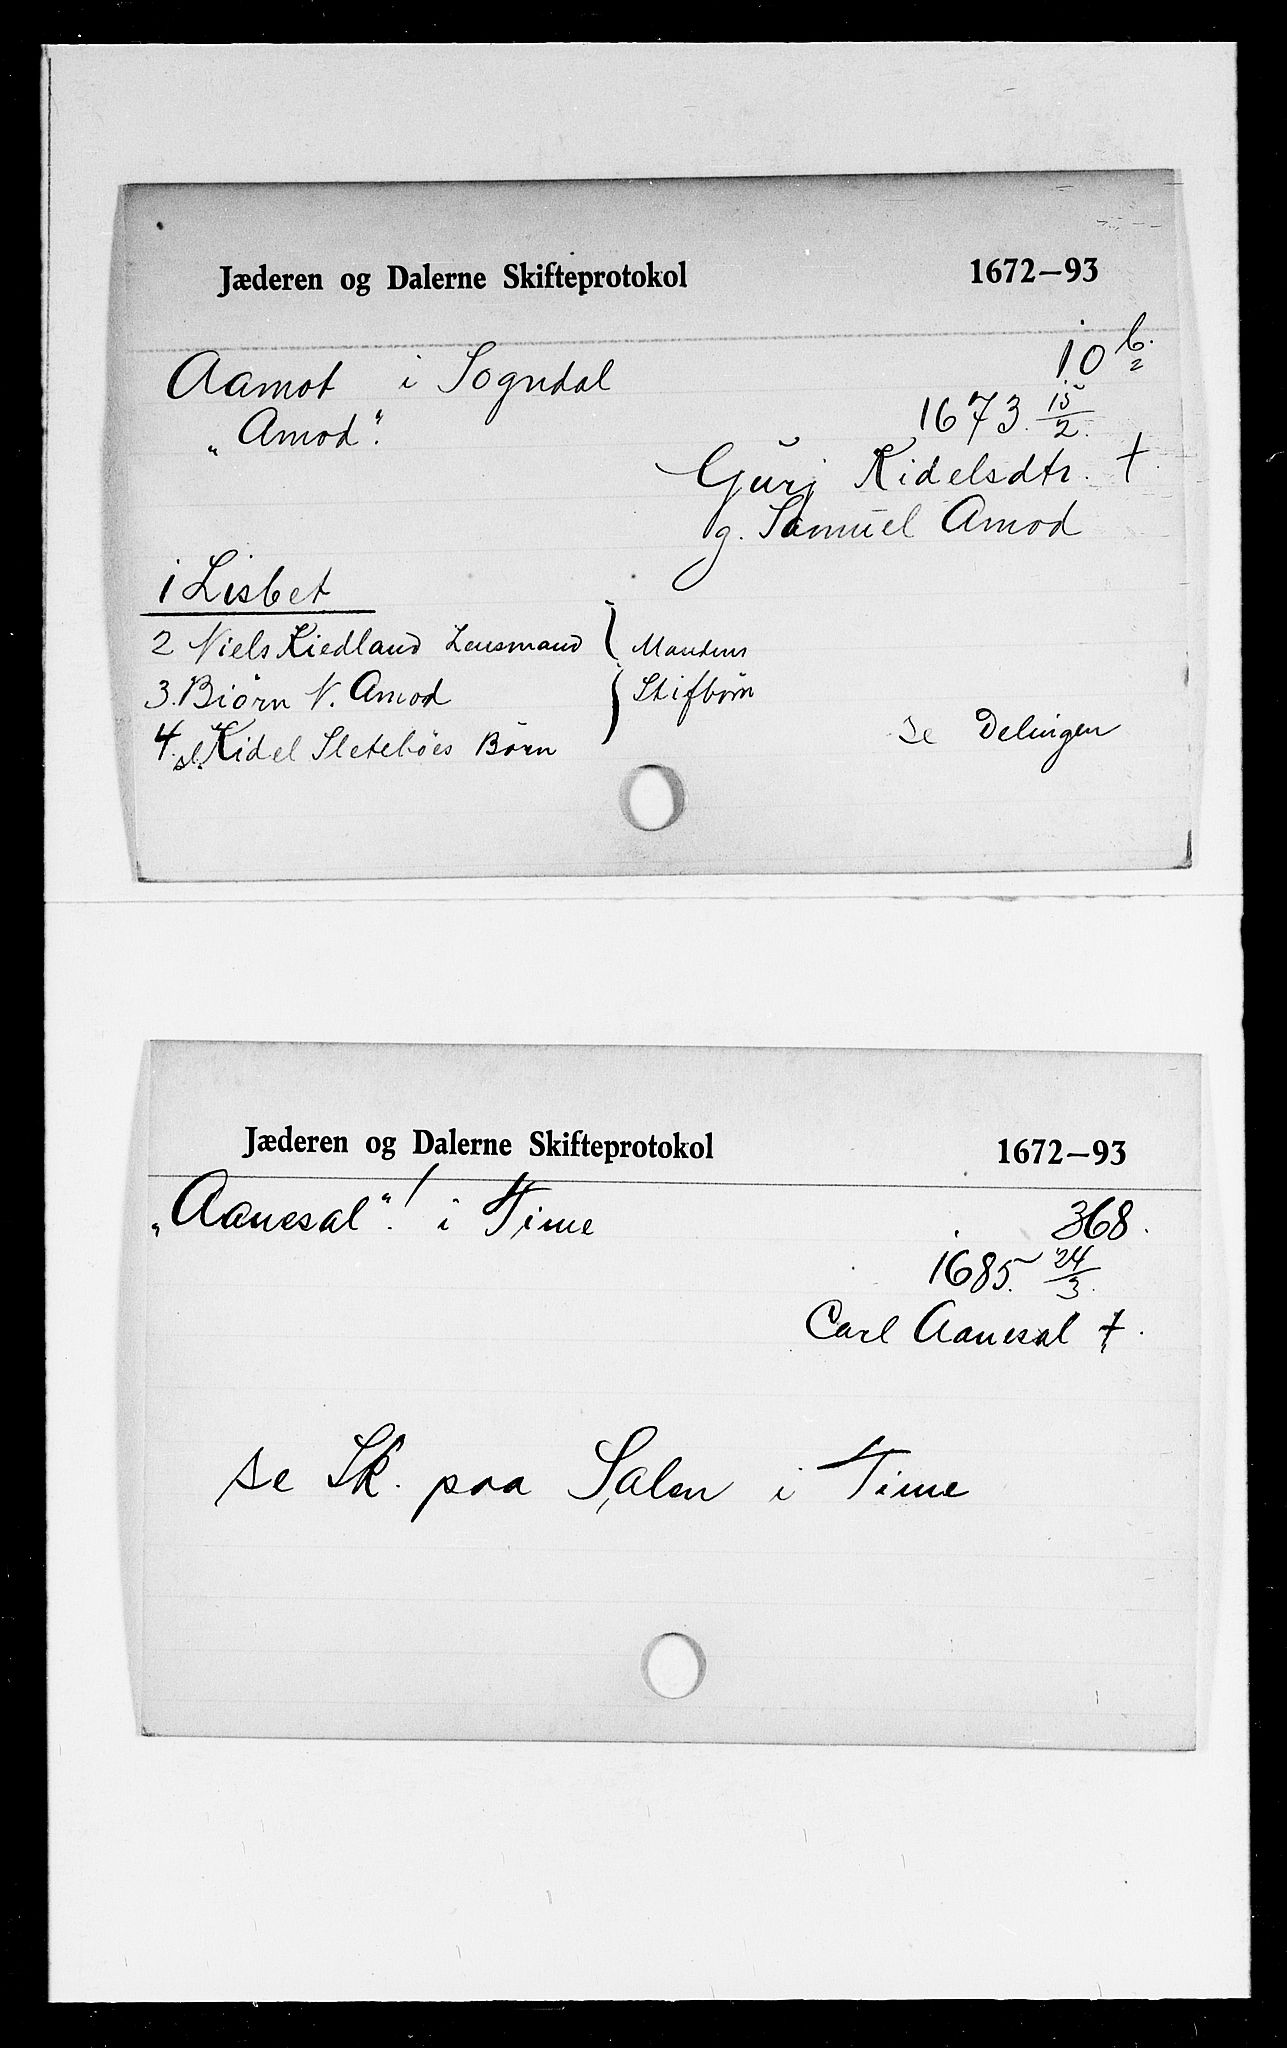 Jæderen og Dalerne Skifteprotokol 1672—93
Aamot i Sogndal 10 b.
„Amod". 1673. 15/2.
Gurj Kidelsdtr. †
g. Samuel Amod
1 Lisbet
2 Niels Kiedland Lensmand } Mandens
3. Biørn N. Amod } Stifbørn
4. sl. Kidel Sletebøes Børn
se Delingen
Jæderen og Dalerne Skifteprotokol 1672—93
„Aanesal"! i Time 368.
1685. 24/3.
Carl Aanesal †.
se Sk. paa Salen i Time